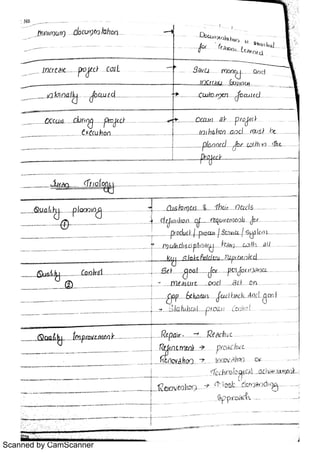 No
minimum documentation → Documentation is essential
for lessons learned
increase project cost → Saves money and
increase
internally focused → customer focused
occurs during project → occurs at project
execution initiation and must be
planned for within the
project
Juran Triology
Quality planning → Customers & their needs
① → definition of requirements for
product / process / service / system
→ multidisciplinary team with all
key stakeholders represented
Quality Control Set goal for performance
② - measure and act on
gap between feedback and goal
→ Statistical process control
Quality Improvement Repair → Reactive
Refinement → proactive
Renovation → innovation or
Technological
Reinvention → most demanding
approach
Scanned by CamScanner